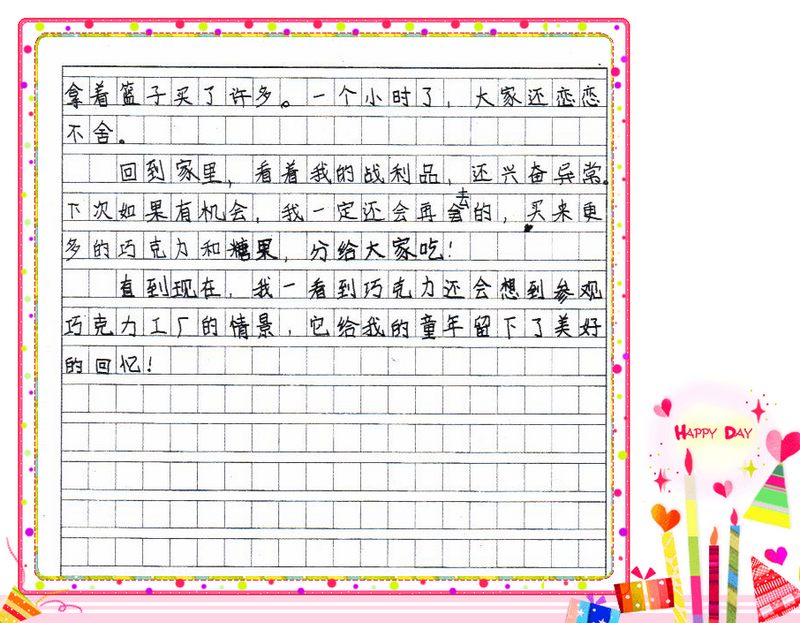 拿着篮子买了许多。一个小时了，大家还恋恋
不舍。
回到家里，看着我的战利品，还兴奋异常。
下次如果有机会，我一定还会再去的，买来更
多的巧克力和糖果，分给大家吃！
直到现在，我一看到巧克力还会想到参观
巧克力工厂的情景，它给我的童年留下了美好
的回忆！
HAPPY DAY